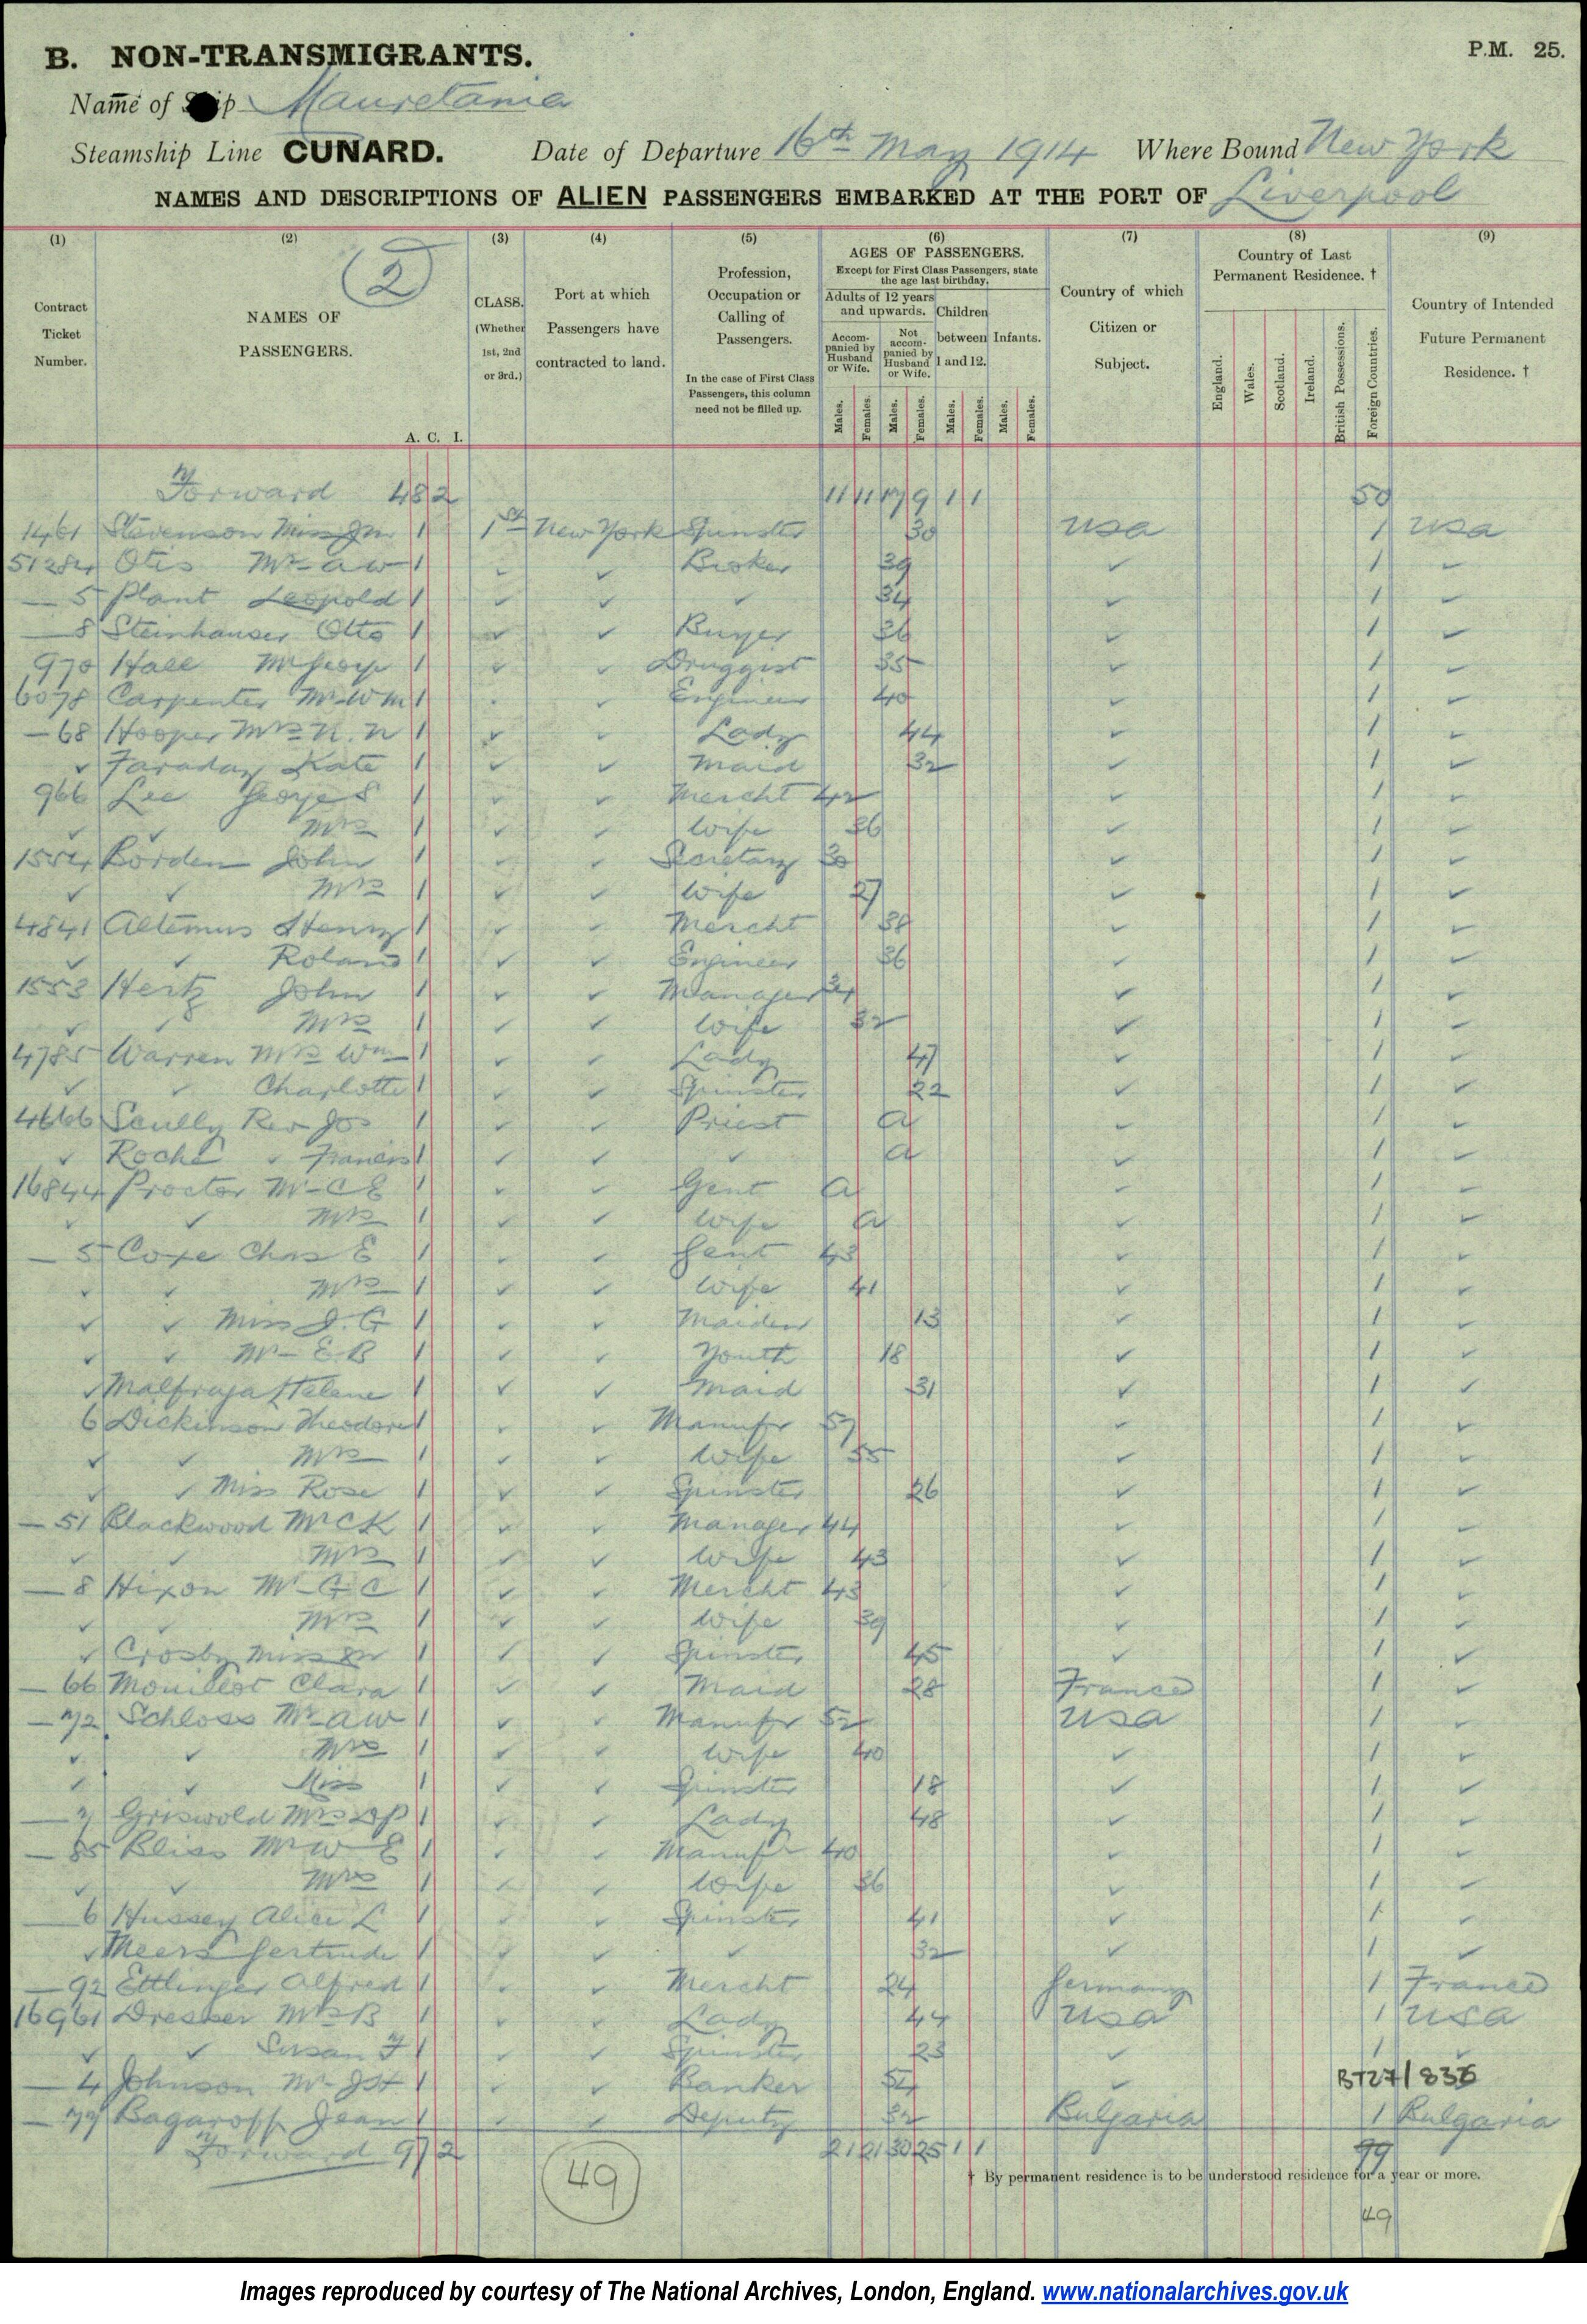 B. NON-TRANSMIGRANTS. P.M. 25.
Name of Ship Mauretania
Steamship Line CUNARD. Date of Departure 16th May 1914 Where Bound New York
NAMES AND DESCRIPTIONS OF ALIEN PASSENGERS EMBARKED AT THE PORT OF Liverpool
(1) (2) (3) (4) (5) (6) (7) (8) (9)
2
Contract Ticket Number.
NAMES OF PASSENGERS.
A. C. I.
CLASS. (Whether 1st, 2nd or 3rd.)
Port at which Passengers have contracted to land.
Profession, Occupation or Calling of Passengers.
In the case of First Class Passengers, this column need not be filled up.
AGES OF PASSENGERS.
Except for First Class Passengers, state the age last birthday.
Adults of 12 years and upwards.
Accompanied by Husband or Wife.
Not accompanied by Husband or Wife.
Children between 1 and 12.
Infants.
Males. Females. Males. Females. Males. Females. Males. Females.
Country of which Citizen or Subject.
Country of Last Permanent Residence. †
England. Wales. Scotland. Ireland. British Possessions. Foreign Countries.
Country of Intended Future Permanent Residence. †
Forward 48 2 11 11 17 9 1 1 50
1461 Stevenson Miss 1 1st New York Spinster 30 USA 1 USA
51284 Otis Mr A W 1 ✓ ✓ Broker 39 ✓ 1 ✓
— 5 Plant Leopold 1 ✓ ✓ ✓ 34 ✓ 1 ✓
— 8 Steinhauser Otto 1 ✓ ✓ Buyer 36 ✓ 1 ✓
970 Hall Mr George 1 ✓ ✓ Druggist 35 ✓ 1 ✓
6078 Carpenter Mr Wm 1 ✓ Engineer 40 ✓ 1 ✓
— 68 Hooper Mrs N. N 1 ✓ ✓ Lady 44 ✓ 1 ✓
✓ Faraday Kate 1 ✓ ✓ Maid 32 ✓ 1 ✓
966 Lee George S 1 ✓ ✓ Mercht 42 ✓ 1 ✓
✓ ✓ Mrs 1 ✓ ✓ Wife 36 ✓ 1 ✓
1554 Borden John 1 ✓ ✓ Secretary 30 ✓ 1 ✓
✓ ✓ Mrs 1 ✓ ✓ Wife 27 ✓ 1 ✓
4841 Altemus Henry 1 ✓ ✓ Mercht 38 ✓ 1 ✓
✓ ✓ Roland 1 ✓ ✓ Engineer 36 ✓ 1 ✓
1553 Hertz John 1 ✓ ✓ Manager ✓ 1 ✓
✓ ✓ Mrs 1 ✓ ✓ Wife 32 ✓ 1 ✓
4785 Warren Mrs Wm 1 ✓ ✓ Lady 47 ✓ 1 ✓
✓ ✓ Charlotte 1 ✓ ✓ Spinster 22 ✓ 1 ✓
4666 Scully Rev Jos 1 ✓ ✓ Priest a ✓ 1 ✓
✓ Roche ✓ Francis 1 ✓ ✓ ✓ a ✓ 1 ✓
16844 Proctor Mr C E 1 ✓ ✓ Gent a ✓ 1 ✓
✓ ✓ Mrs 1 ✓ ✓ Wife a ✓ 1 ✓
— 5 Coxe Chas E 1 ✓ ✓ Gent 43 ✓ 1 ✓
✓ ✓ Mrs 1 ✓ ✓ Wife 41 ✓ 1 ✓
✓ ✓ Miss J. G 1 ✓ ✓ Maiden 13 ✓ 1 ✓
✓ ✓ Mr E B 1 ✓ ✓ Youth 18 ✓ 1 ✓
✓ Helene 1 ✓ ✓ Maid 31 ✓ 1 ✓
6 Dickinson Theodore 1 ✓ ✓ Manufr 57 ✓ 1 ✓
✓ ✓ Mrs 1 ✓ ✓ Wife 55 ✓ 1 ✓
✓ ✓ Miss Rose 1 ✓ ✓ Spinster 26 ✓ 1 ✓
— 51 Blackwood Mr C K 1 ✓ ✓ Manager 44 ✓ 1 ✓
✓ ✓ Mrs 1 ✓ ✓ Wife 43 ✓ 1 ✓
— 8 Hixon Mr G C 1 ✓ ✓ Mercht 43 ✓ 1 ✓
✓ ✓ Mrs 1 ✓ ✓ Wife 39 ✓ 1 ✓
✓ Crosby Miss 1 ✓ ✓ Spinster 45 ✓ 1 ✓
— 66 Clara 1 ✓ ✓ Maid 28 France 1 ✓
— 72 Schloss Mr A W 1 ✓ ✓ Manufr 52 USA 1 ✓
✓ ✓ Mrs 1 ✓ ✓ Wife 40 ✓ 1 ✓
✓ ✓ Miss 1 ✓ ✓ Spinster 18 ✓ 1 ✓
— 7 Griswold Mrs 1 ✓ ✓ Lady 48 ✓ 1 ✓
— 85 Bliss Mr W E 1 ✓ ✓ Manufr 40 ✓ 1 ✓
✓ ✓ Mrs 1 ✓ ✓ Wife 36 ✓ 1 ✓
— 6 Hussey Alice L 1 ✓ ✓ Spinster 41 ✓ 1 ✓
✓ Meers Gertrude 1 ✓ ✓ ✓ 32 ✓ 1 ✓
— 92 Ettlinger Alfred 1 ✓ ✓ Mercht 24 Germany 1 France
16961 Dresser Mrs B 1 ✓ ✓ Lady 44 USA 1 USA
✓ ✓ Susan F 1 ✓ ✓ Spinster 23 ✓ 1 ✓
— 4 Johnson Mr 1 ✓ ✓ Banker 54 ✓
BT27/836
— 77 Bagaroff Jean 1 ✓ ✓ Deputy 32 Bulgaria 1 Bulgaria
Forward 97 2 21 21 30 25 1 1 99
49
† By permanent residence is to be understood residence for a year or more.
49
Images reproduced by courtesy of The National Archives, London, England. www.nationalarchives.gov.uk